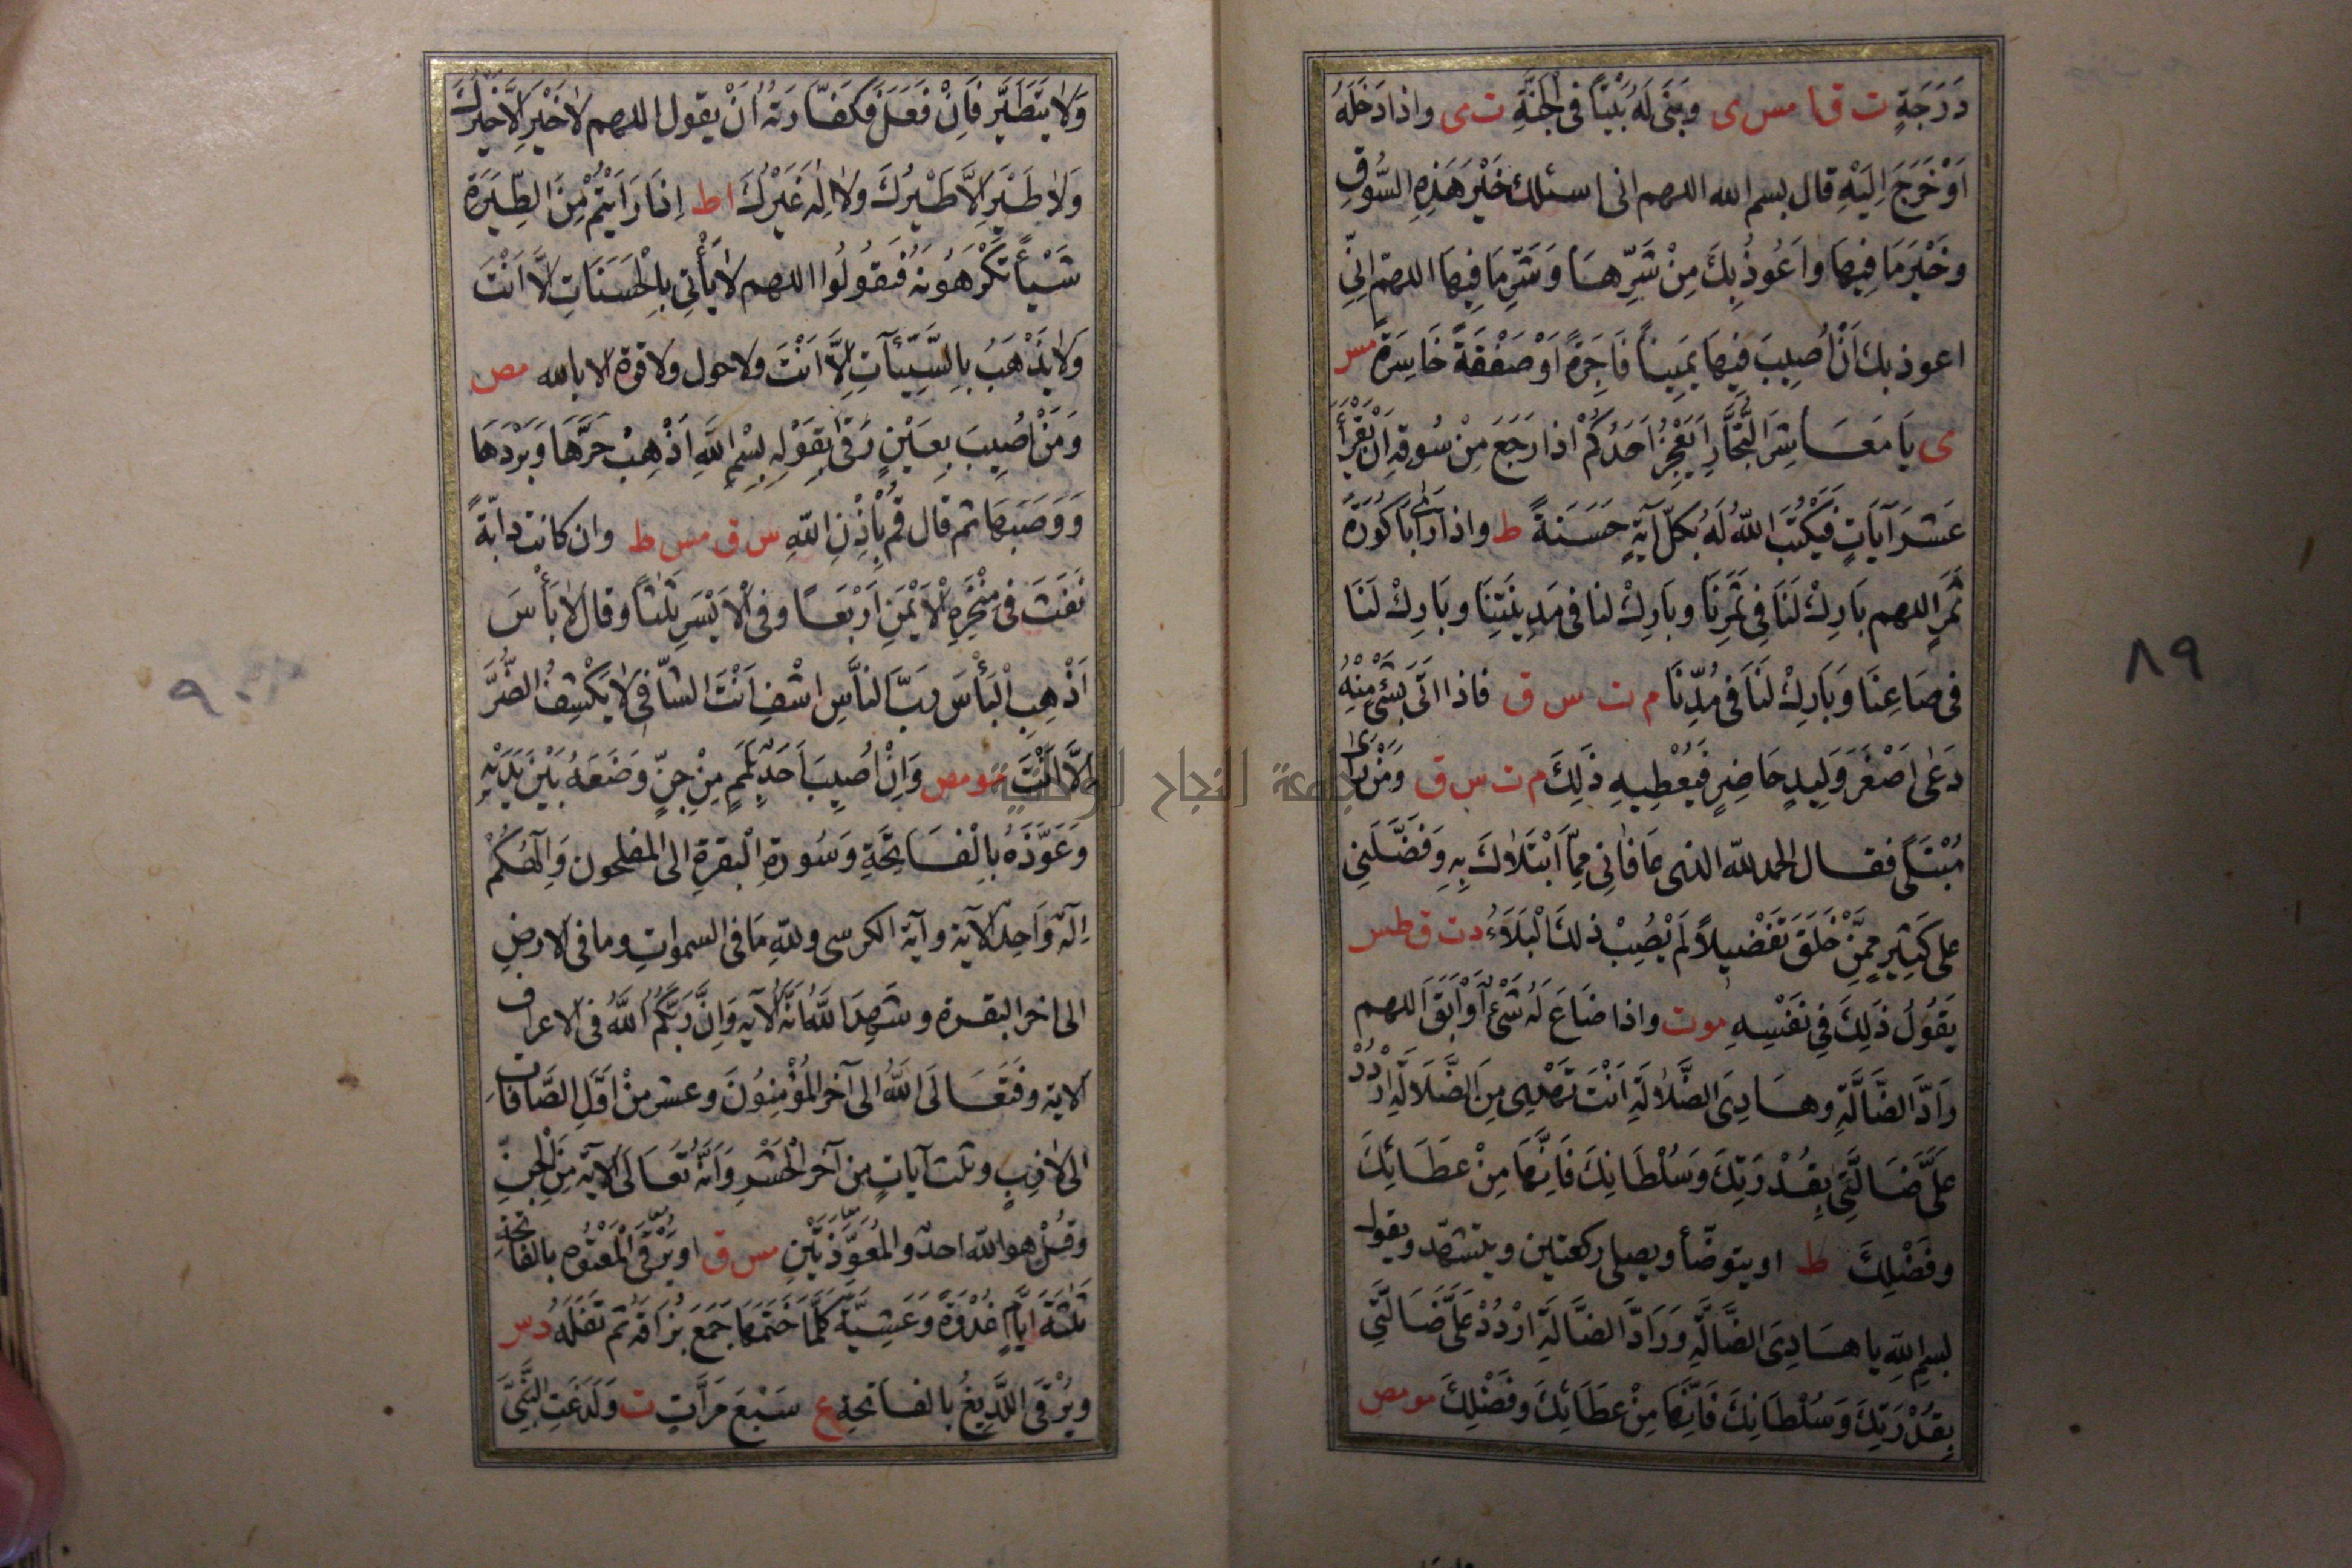 دَرَجَةٍ ت ق ا مس ى وبنى لَهُ بَيْتًا فى الجَنَّةِ ت ى واذا دَخَلَهُ
اَوْ خَرَجَ اِلَيْهِ قال بسم الله اللهم انى اسئلك خَيْرَ هَذِهِ السُّوقِ
وخَيْرَ مَا فِيهَا واَعُوذُ بِكَ مِنْ شَرِّهَا وَشَرِّ مَا فِيهَا اللهم اِنِّى
اعوذ بك اَنْ اُصِيبَ فِيهَا يَمِينًا فَاجِرَةً اَوْ صَفْقَةً خَاسِرَةً مس
ى يَا مَعَاشِرَ التُّجَّارِ اَيَعْجِزُ اَحَدُكُمْ اذا رَجَعَ مِنْ سُوقِهِ اَنْ يَقْرَأَ
عَشْرَ آيَاتٍ فَيَكْتُبَ اللّٰهُ لَهُ بِكُلِّ آيَةٍ حَسَنَةً ط واذا رَأى بَاكُورَةَ
ثَمَرٍ اللهم بَارِكْ لَنَا فِى ثَمَرِنَا وبَارِكْ لنا فى مَدِينَتِنَا وبَارِكْ لَنَا
فى صَاعِنَا وَبَارِكْ لَنَا فى مُدِّنَا م ت س ق فاذا اُتى بشئ مِنْهُ
دَعٰى اَصْغَرَ وَلِيدٍ حَاضِرٍ فَيُعْطِيهِ ذٰلِكَ م ت س ق وَمَنْ رَاى
مُبْتَلًى فقال الحمد للّه الذى عَافَانِى مِمَّا ابْتَلَاكَ بِهِ وَفَضَّلَنِى
على كَثِيرٍ مِمَّنْ خَلَقَ تَفْضِيلاً لَمْ يُصِبْهُ ذلك الْبَلَاءُ د ت ق طس
يَقُولُ ذَلِكَ فِى نَفْسِهِ موت واذا ضَاعَ لَهُ شَئٌ اَوْ اَبَقَ اللهم
رَادَّ الضَّالَّةِ وهَادِىَ الضَّلَالَةِ اَنْتَ تَهْدِى مِنَ الضَّلَالَةِ ارْدُدْ
عَلَىَّ ضَالَّتِى بِقُدْرَتِكَ وَسُلْطَانِكَ فَاِنَّهَا مِنْ عَطَائِكَ
وفَضْلِكَ ط او يتوضّأ ويصلى ركعتين ويتشهّد ويقول
بسم اللّهِ يا هَادِىَ الضَّالَّةِ وَرَادَّ الضَّالَّةِ ارْدُدْ عَلَىَّ ضَالَّتِى
بِقُدْرَتِكَ وَسُلْطَانِكَ فَاِنَّهَا مِنْ عَطَائِكَ وفَضْلِكَ مومص
٨٩
وَلَا يَتَطَيَّر فَاِنْ فَعَلَ فَكَفَّارَتُهُ اَنْ يقول اللهم لا خَيْرَ اِلَّا خَيْرُكَ
وَلَا طَيْرَ اِلَّا طَيْرُكَ ولا اِلٰهَ غَيْرُكَ اط اِذَا رَاَيْتُمْ مِنَ الطِّيَرَةِ
شَيْأً تَكْرَهُونَهُ فَقُولُوا اللهم لَا يَأْتِى بِالْحَسَنَاتِ اِلَّا اَنْتَ
وَلَا يَذْهَبُ بِالسَّيِّئَآتِ اِلَّا اَنْتَ ولا حول ولا قوة الا بالله مص
وَمَنْ اُصِيبَ بِعَيْنٍ رُقِىَ بِقَوْلِهِ بِسْمِ اللّهِ اَذْهِبْ حَرَّهَا وَبَرْدَهَا
وَوَصَبَهَا ثم قال قُمْ بِاِذْنِ اللّهِ س ق مس ط وان كانت دابّةً
نَفَثَ فى مَنْخِرِهِ الْاَيْمَنِ اَرْبَعًا وفى الْاَيْسَرِ ثَلٰثًا وقال لَا بَأْسَ
اَذْهِبِ الْبَأْسَ رَبَّ النَّاسِ اشْفِ اَنْتَ الشَّافِى لَا يَكْشِفُ الضُّرَّ
اِلَّا اَنْتَ مومص وَاِنْ اُصِيبَ اَحَدٌ بِلَمَمٍ مِنْ جِنٍّ وَضَعَهُ بَيْنَ يَدَيْهِ
وَعَوَّذَهُ بِالْفَاتِحَةِ وَسُورَةِ الْبقرةِ الى المفلحون وَاِلٰهُكُمْ
اِلٰهٌ وَّاحِدٌ الآية وآية الكرسى وللّهِ مَا فى السموات وما فى الارض
الى اخر البقرة وشَهِدَ اللَّهُ اَنَّهُ الآيه وَاِنَّ رَبَّكُمُ اللَّهُ فى الاعراف
الاية وفَتَعَالَى اللّهُ الى آخر المُؤْمِنُونَ وعشر مِنْ اَوَّلِ الصَّافَاتِ
الى لازِبٍ وثلث آياتٍ من آخر الْحَشْرِ وَاَنَّهُ تَعَالَى الاية مِنَ الْجِنِّ
وقُلْ هو اللّه احدٌ والمُعَوِّذَتَيْنِ مس ق او يُرْقَى الْمَعْتُوهُ بالفاتحة
ثَلٰثَةَ اَيَّامٍ غُدْوَةً وَعَشِيَّةً كُلَّمَا خَتَمَهَا جَمَعَ بُزَاقَهُ ثم تَفَلَهُ د س
ويُرْقَى اللَّدِيغُ بالفاتحةِ ع سَبْعَ مَرَّاتٍ ت وَلَدَغَتِ النَّبِىَّ
٩٠
جامعة النجاح الوطنية